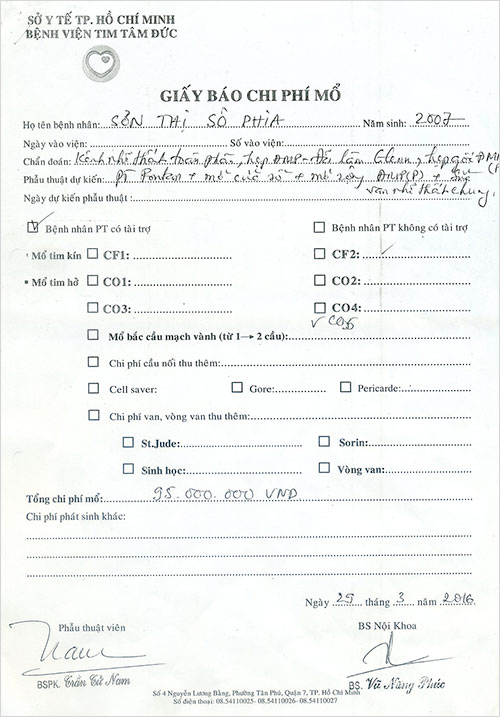 SỞ Y TẾ TP. HỒ CHÍ MINH
BỆNH VIỆN TIM TÂM ĐỨC
GIẤY BÁO CHI PHÍ MỔ
Họ tên bệnh nhân: SƠN THỊ SÔ PHIA Năm sinh: 2007
Ngày vào viện: Số vào viện:
Chẩn đoán: Kênh nhĩ thất toàn phần, hẹp ĐMP - Đã làm Glenn, hẹp gốc ĐMP
Phẫu thuật dự kiến: PT Fontan + mở cửa sổ + mở rộng ĐMP(P) + sửa
van nhĩ thất chung
Ngày dự kiến phẫu thuật:
Bệnh nhân PT có tài trợ Bệnh nhân PT không có tài trợ
Mổ tim kín CF1: CF2:
Mổ tim hở CO1: CO2:
CO3: CO4:
v CO5
Mổ bắc cầu mạch vành (từ 1→ 2 cầu):
Chi phí cầu nối thu thêm:
Cell saver: Gore: Pericarde:
Chi phí van, vòng van thu thêm:
St.Jude: Sorin:
Sinh học: Vòng van:
Tổng chi phí mổ: 95.000.000 VND
Chi phí phát sinh khác:
Ngày 29 tháng 3 năm 2016
Phẫu thuật viên BS Nội Khoa
BSPK. Trần Tử Nam BS. Vũ Năng Phúc
Số 4 Nguyễn Lương Bằng, Phường Tân Phú, Quận 7, TP. Hồ Chí Minh
Số điện thoại: 08.54110025- 08.54110026 - 08.54110027